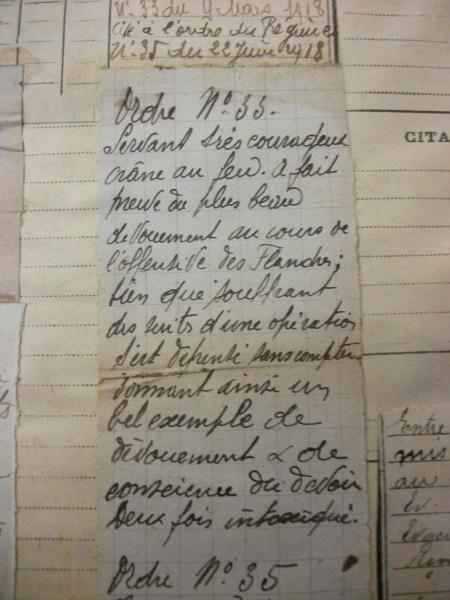 N° 33 du 9 Mars 1918
Cité à l'ordre du Régiment
N° 35 du 22 Juin 1918
Ordre N° 33.
Servant très courageux
crâne au feu. A fait
preuve du plus beau
dévouement au cours de
l'offensive des Flandres;
bien que souffrant
des suites d'une opération
s'est dépensé sans compter
donnant ainsi un
bel exemple de
dévouement & de
conscience du devoir
Deux fois intoxiqué.
Ordre N° 35
CITA
Entre
mis
au
Ev.
Evac